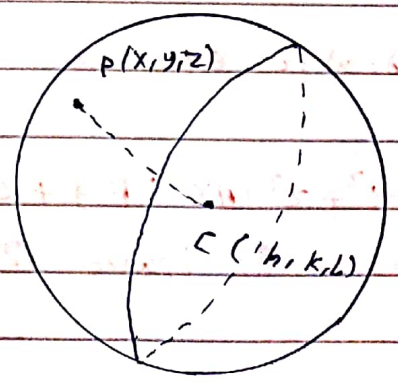 P(x,y,z)
C (h, k, L)